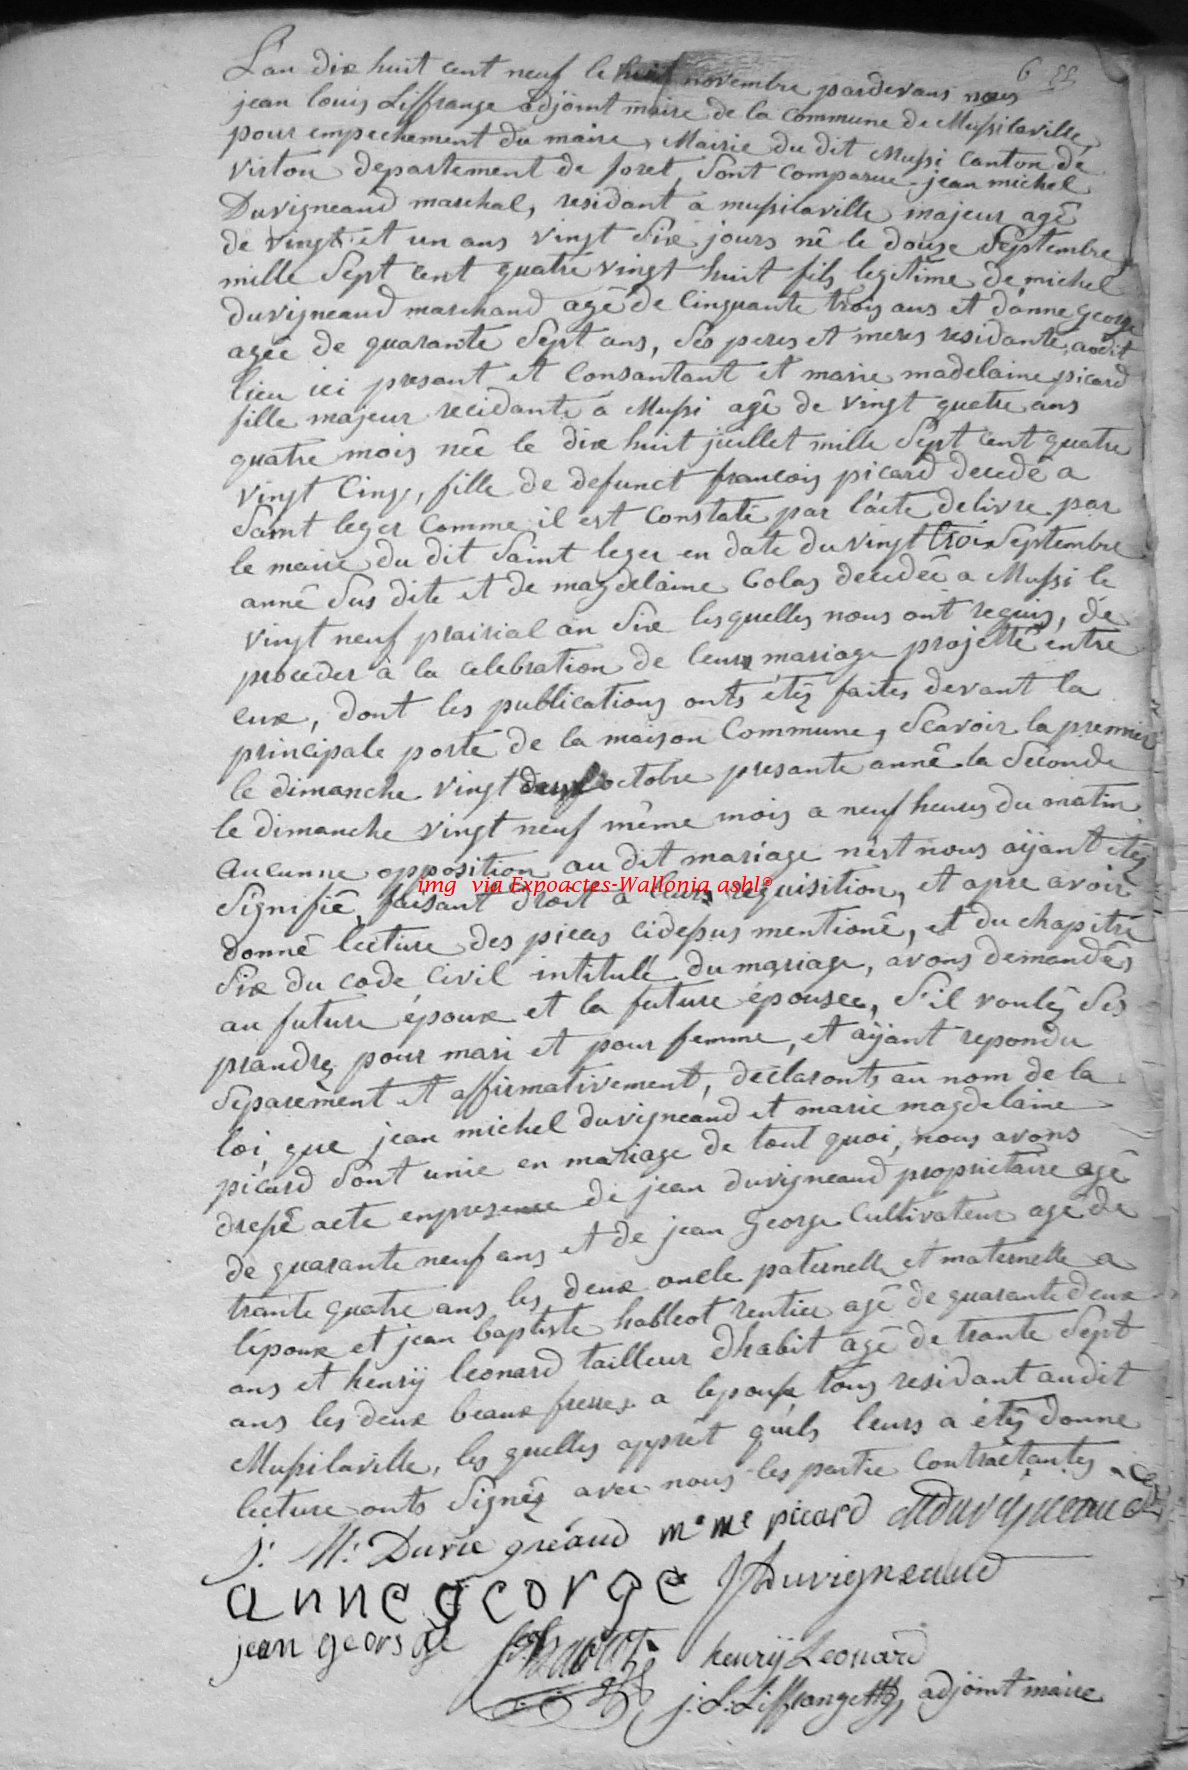 6
L'an dix huit cent neuf le huit novembre pardevans nous
jean louis Liffrange adjoint maire de la commune de Mussilaville
pour empechement du maire, Mairie du dit Mussi Canton de
Virton departement de foret, Sont comparue jean michel
Duvigneaud marchal, residant a mussilaville majeur agê
de vingt et un ans vingt Six jours nê le douze Septembre
mille Sept cent quatre vingt huit fils legitime de michel
duvigneaud marchand agê de Cinquante trois ans et d'anne George
agée de quarante Sept ans, Ses peres et meres residante, audit
lieu ici presant et Consantant et marie madelaine picard
fille majeur recidante á Mussi agê de vingt quatre ans
quatre mois née le dix huit juillet mille Sept cent quatre
vingt Cinq, fille de defunct francois picard decedé a
Saint leger Comme il est Constaté par l'acte delivre par
le maire du dit Saint leger en date du vingt trois Septembre
annê Sus dite et de magdelaine Colas decedée a Mussi le
vingt neuf prairial an Six lesquelles nous ont requis, de
proceder à la celebration de leurs mariage projetté entre
eux, dont les publications onts étéz faites devant la
principale porte de la maison Commune, Scavoir la premier
le dimanche vingt deux octobre presante annê la Seconde
le dimanche vingt neuf même mois a neuf heures du matin
aucunne opposition au dit mariage n'est nous aÿant étéz
img via Expoactes-Wallonia asbl°
Signifiê, faisant droit a leurs requisition, et apre avoir
donnê lecture des pieces cidessus mentionê, et du chapitre
Six du code Civil intitullé du mariage, avons demandês
au future époux et la future épousee, S'il voulêz Ses
prandrez pour mari et pour femme, et aÿant repondu
Separement et affirmativement, declaronts au nom de la
loi, que jean michel duvigneaud et marie magdelaine
picard Sont unie en mariage de tout quoi, nous avons
dressê acte enpresence de jean duvigneaud proprietaire agê
de quarante neuf ans et de jean George Cultivateur agé de
trante quatre ans les deux oncle paternelle et maternelle a
l'epoux et jean baptiste hableot rentier agê de quarante deux
ans et henrÿ leonard tailleur dhabit agê de trante Sept
ans les deux beaux freres a lepouse tous residant audit
Mussilaville, les quelles apprêt quels leurs a étéz donne
lecture onts Signéz avec nous les partie Contractantes
j: M: Duvie gneaud m e m e picard MDuvigneaud
anne george JDuvigneaud
jean george henrÿ Leonard
j: L: Liffrange adjoint maire